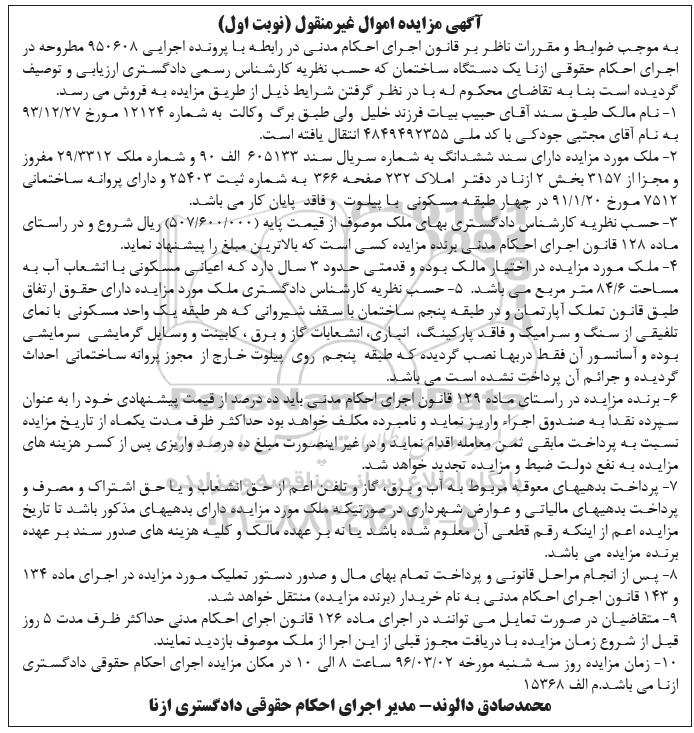 آگهی مزایده اموال غیرمنقول (نوبت اول)
به موجب ضوابط و مقررات ناظر بر قانون اجرای احکام مدنی در رابطه با پرونده اجرایی ۹۵۰۶۰۸ مطروحه در
اجرای احکام حقوقی ازنا یک دستگاه ساختمان که حسب نظریه کارشناس رسمی دادگستری ارزیابی و توصیف
گردیده است بنا به تقاضای محکوم له با در نظر گرفتن شرایط ذیل از طریق مزایده به فروش می رسد.
۱- نام مالک طبق سند آقای حبیب بیات فرزند خلیل ولی طبق برگ وکالت به شماره ۱۲۱۲۴ مورخ ۹۳/۱۲/۲۷
به نام آقای مجتبی جودکی با کد ملی ۴۸۴۹۴۹۲۳۵۵ انتقال یافته است.
۲- ملک مورد مزایده دارای سند ششدانگ به شماره سریال سند ۶۰۵۱۳۳ الف ۹۰ و شماره ملک ۲۹/۳۳۱۲ مفروز
و مجزا از ۳۱۵۷ بخش ۲ ازنا در دفتر املاک ۲۳۲ صفحه ۳۶۶ به شماره ثبت ۲۵۴۰۳ و دارای پروانه ساختمانی
۷۵۱۲ مورخ ۹۱/۱/۲۰ در چهار طبقه مسکونی با پیلوت و فاقد پایان کار می باشد.
۳- حسب نظریه کارشناس دادگستری بهای ملک موصوف از قیمت پایه (۵۰۷/۶۰۰/۰۰۰) ریال شروع و در راستای
ماده ۱۲۸ قانون اجرای احکام مدنی برنده مزایده کسی است که بالاترین مبلغ را پیشنهاد نماید.
۴- ملک مورد مزایده در اختیار مالک بوده و قدمتی حدود ۳ سال دارد که اعیانی مسکونی با انشعاب آب به
مساحت ۸۴/۶ متر مربع می باشد. ۵- حسب نظریه کارشناس دادگستری ملک مورد مزایده دارای حقوق ارتفاق
طبق قانون تملک آپارتمان و در طبقه پنجم ساختمان با سقف شیروانی که هر طبقه یک واحد مسکونی با نمای
تلفیقی از سنگ و سرامیک و فاقد پارکینگ، انباری، انشعابات گاز و برق ، کابینت و وسایل گرمایشی سرمایشی
بوده و آسانسور آن فقط دربها نصب گردیده که طبقه پنجم روی پیلوت خارج از مجوز پروانه ساختمانی احداث
گردیده و جرائم آن پرداخت نشده است می باشد.
۶- برنده مزایده در راستای ماده ۱۲۹ قانون اجرای احکام مدنی باید ده درصد از قیمت پیشنهادی خود را به عنوان
سپرده نقداً به صندوق اجراء واریز نماید و نامبرده مکلف خواهد بود حداکثر ظرف مدت یکماه از تاریخ مزایده
نسبت به پرداخت مابقی ثمن معامله اقدام نماید و در غیر اینصورت مبلغ ده درصد واریزی پس از کسر هزینه های
مزایده به نفع دولت ضبط و مزایده تجدید خواهد شد.
۷- پرداخت بدهیهای معوقه مربوط به آب و برق، گاز و تلفن اعم از حق انشعاب و یا حق اشتراک و مصرف و
پرداخت بدهیهای مالیاتی و عوارض شهرداری در صورتیکه ملک مورد مزایده دارای بدهیهای مذکور باشد تا تاریخ
مزایده اعم از اینکه رقم قطعی آن معلوم شده باشد یا نه بر عهده مالک و کلیه هزینه های صدور سند بر عهده
برنده مزایده می باشد.
۸- پس از انجام مراحل قانونی و پرداخت تمام بهای مال و صدور دستور تملیک مورد مزایده در اجرای ماده ۱۳۴
و ۱۴۳ قانون اجرای احکام مدنی به نام خریدار (برنده مزایده) منتقل خواهد شد.
۹- متقاضیان در صورت تمایل می توانند در اجرای ماده ۱۲۶ قانون اجرای احکام مدنی حداکثر ظرف مدت ۵ روز
قبل از شروع زمان مزایده با دریافت مجوز قبلی از این اجرا از ملک موصوف بازدید نمایند.
۱۰- زمان مزایده روز سه شنبه مورخه ۹۶/۰۳/۰۲ ساعت ۸ الی ۱۰ در مکان مزایده اجرای احکام حقوقی دادگستری
ازنا می باشد.م الف ۱۵۳۶۸
محمدصادق دالوند– مدیر اجرای احکام حقوقی دادگستری ازنا
ParsNamadData
پایگاه اطلاع رسانی مناقصه و مزایده
۰۲۱-۸۸۳۴۹۶۷۰-۵